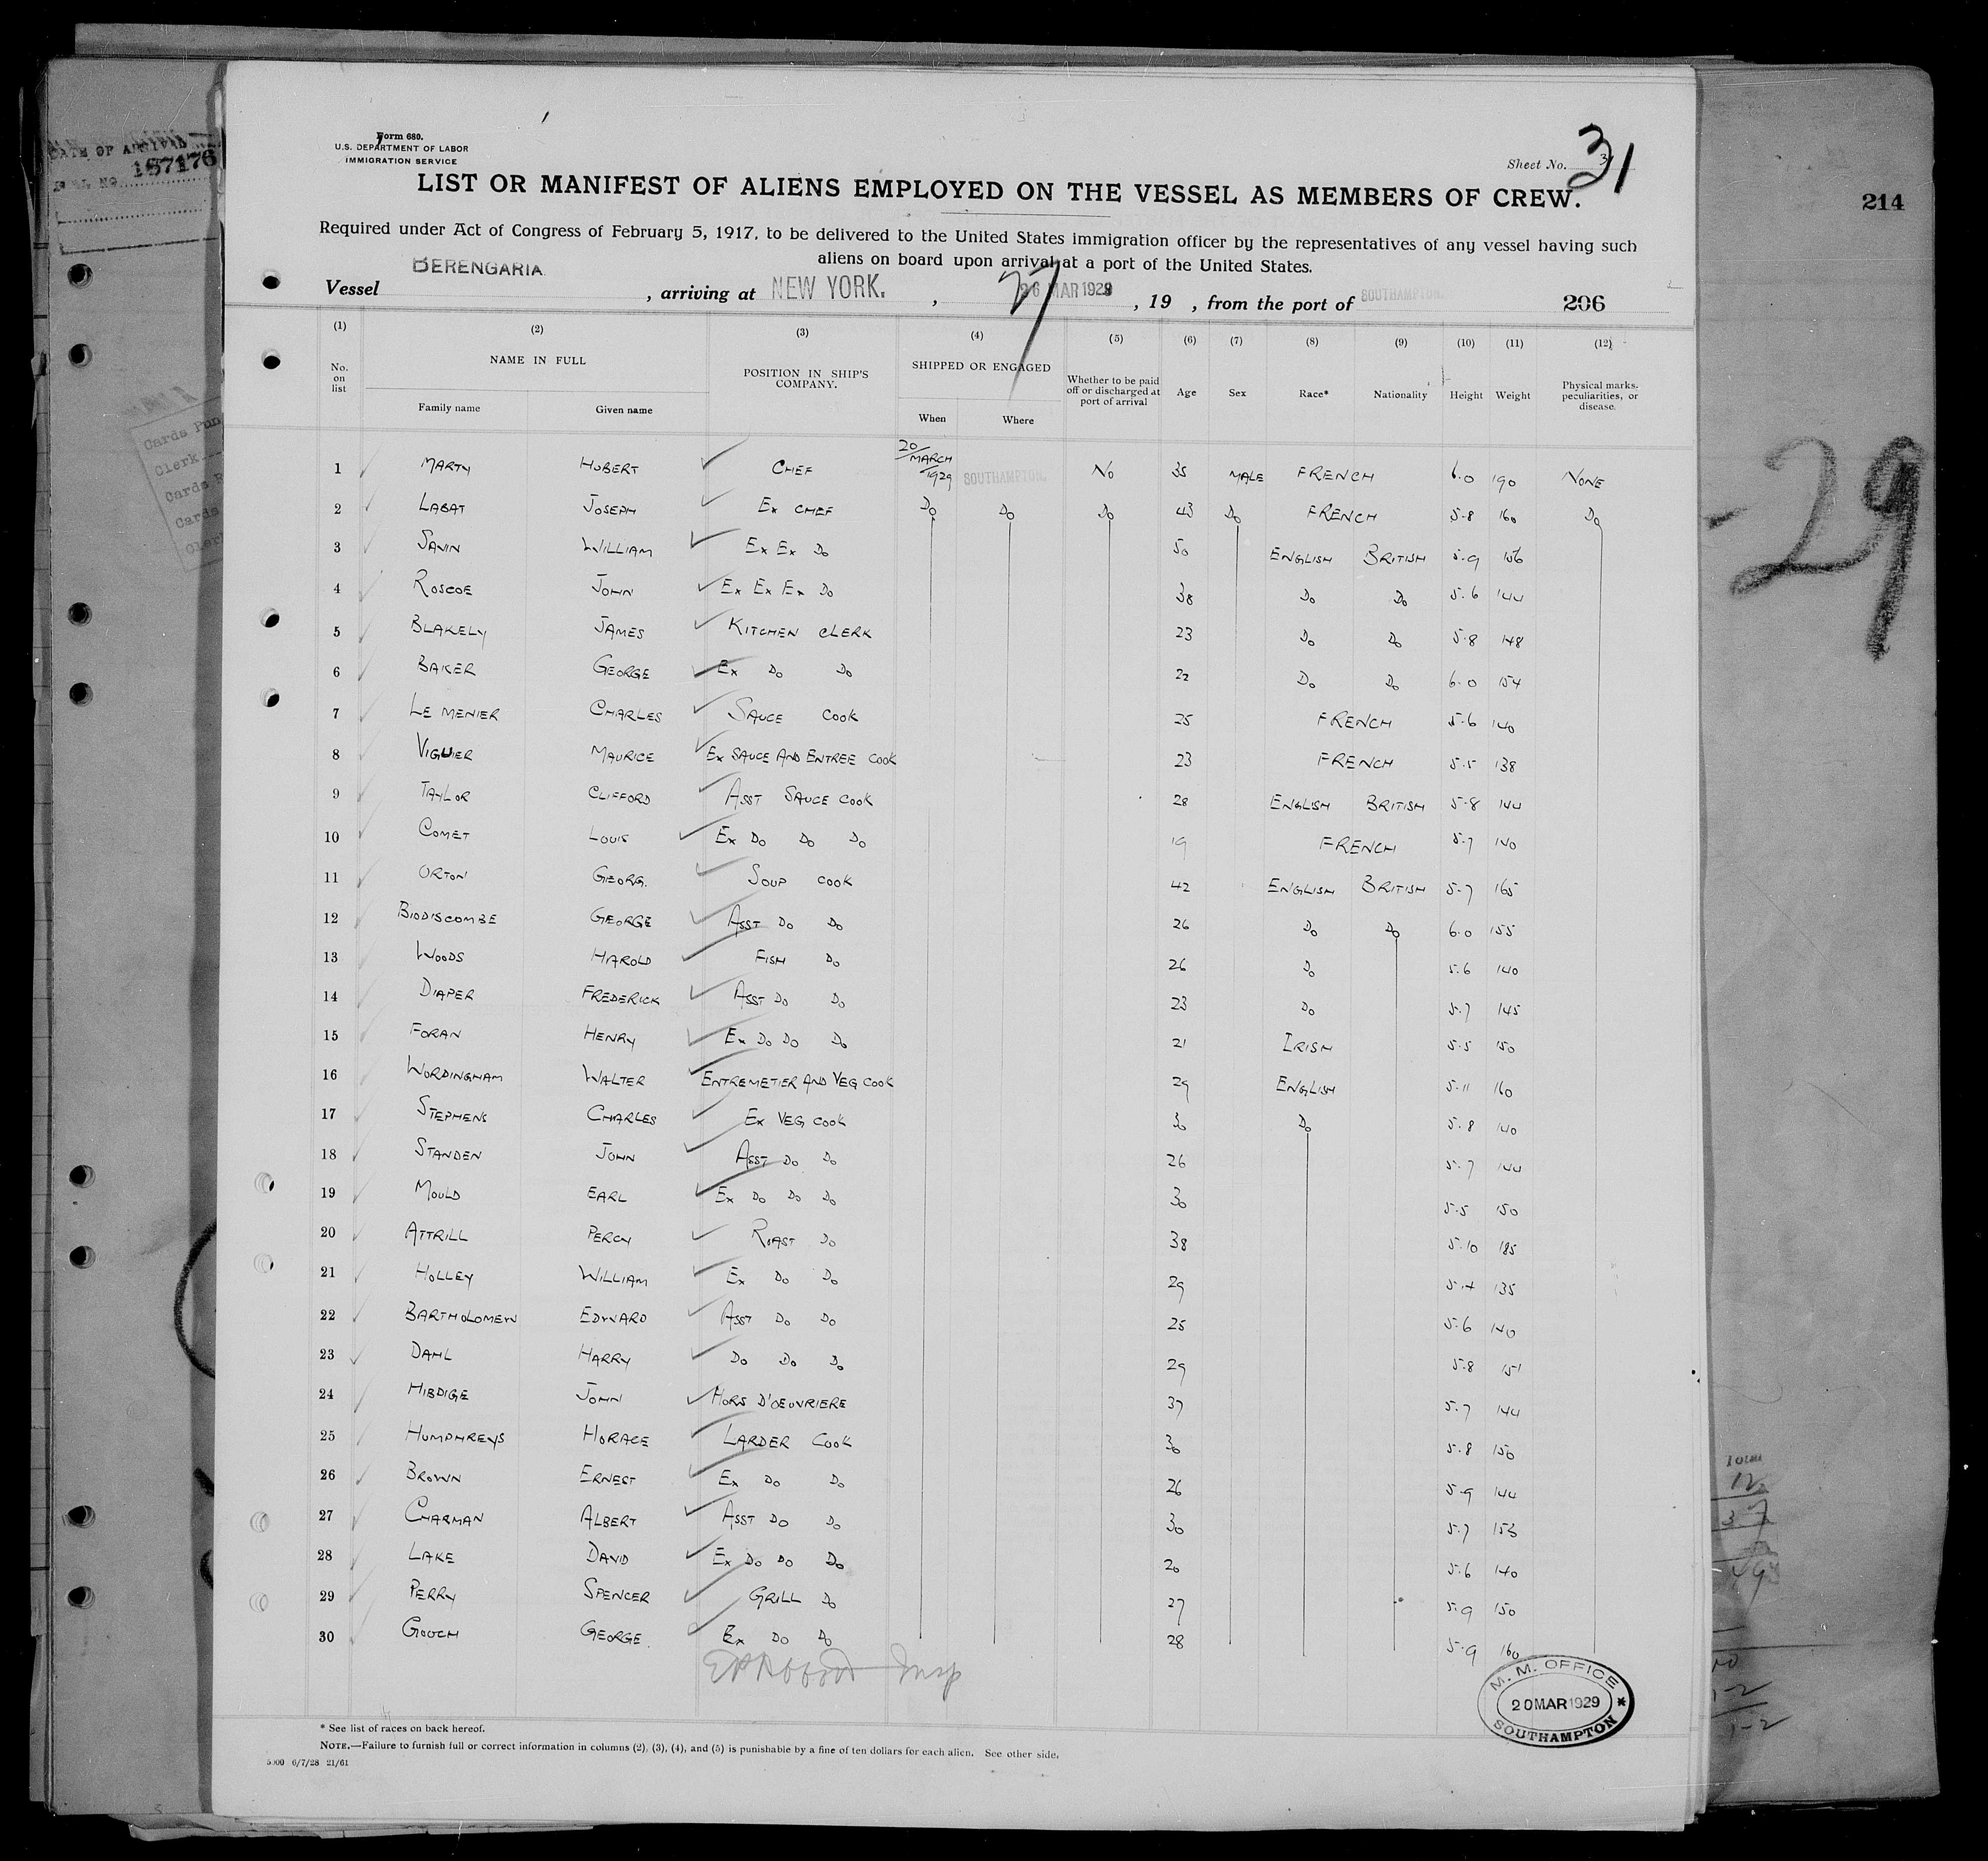 DATE OF ARRIVAL
187176
Form 680.
U.S. DEPARTMENT OF LABOR
IMMIGRATION SERVICE
Sheet No. 31
LIST OR MANIFEST OF ALIENS EMPLOYED ON THE VESSEL AS MEMBERS OF CREW.
214
Required under Act of Congress of February 5, 1917, to be delivered to the United States immigration officer by the representatives of any vessel having such
aliens on board upon arrival at a port of the United States.
Vessel BERENGARIA , arriving at NEW YORK. , 26 MAR 1929 27 , 19 , from the port of SOUTHAMPTON. 206
(1) (2) (3) (4) (5) (6) (7) (8) (9) (10) (11) (12)
No. on list NAME IN FULL Family name Given name POSITION IN SHIP'S COMPANY. SHIPPED OR ENGAGED When Where Whether to be paid off or discharged at port of arrival Age Sex Race* Nationality Height Weight Physical marks, peculiarities, or disease.
1 MARTY HUBERT CHEF 20/MARCH/1929 SOUTHAMPTON. No 35 MALE FRENCH 6.0 190 NONE
2 LABAT JOSEPH EX CHEF Do Do Do 43 Do FRENCH 5.8 160 Do
3 SAVIN WILLIAM EX EX Do 50 ENGLISH BRITISH 5.9 156
4 ROSCOE JOHN EX EX EX Do 38 Do Do 5.6 144
5 BLAKELY JAMES KITCHEN CLERK 23 Do Do 5.8 148
6 BAKER GEORGE EX Do Do 22 Do Do 6.0 154
7 LE MENIER CHARLES SAUCE COOK 25 FRENCH 5.6 140
8 VIGUIER MAURICE EX SAUCE AND ENTREE COOK 23 FRENCH 5.5 138
9 TAYLOR CLIFFORD ASST SAUCE COOK 28 ENGLISH BRITISH 5.8 144
10 COMET LOUIS EX Do Do Do 19 FRENCH 5.7 140
11 ORTON GEORG. SOUP COOK 42 ENGLISH BRITISH 5.7 165
12 BIODISCOMBE GEORGE ASST Do Do 26 Do Do 6.0 155
13 WOODS HAROLD FISH Do 26 Do 5.6 140
14 DIAPER FREDERICK ASST Do Do 23 Do 5.7 145
15 FORAN HENRY EX Do Do Do 21 IRISH 5.5 150
16 WORDINGHAM WALTER ENTREMETIER AND VEG COOK 29 ENGLISH 5.11 160
17 STEPHENS CHARLES EX VEG COOK 30 Do 5.8 140
18 STANDEN JOHN ASST Do Do 26 5.7 144
19 MOULD EARL EX Do Do Do 30 5.5 150
20 ATTRILL PERCY ROAST Do 38 5.10 185
21 HOLLEY WILLIAM EX Do Do 29 5.4 135
22 BARTHOLOMEW EDWARD ASST Do Do 25 5.6 140
23 DAHL HARRY Do Do Do 29 5.8 151
24 HIBDIGE JOHN HORS D'OEUVRIERE 37 5.7 144
25 HUMPHREYS HORACE LARDER COOK 30 5.8 150
26 BROWN ERNEST EX Do Do 26 5.9 144
27 CHARMAN ALBERT ASST Do Do 30 5.7 153
28 LAKE DAVID EX Do Do Do 20 5.6 140
29 PERRY SPENCER GRILL Do 27 5.9 150
30 GOUCH GEORGE. EX Do Do 28 5.9 160
Insp
M. M. OFFICE
20 MAR 1929
SOUTHAMPTON
* See list of races on back hereof.
NOTE.—Failure to furnish full or correct information in columns (2), (3), (4), and (5) is punishable by a fine of ten dollars for each alien. See other side.
5000 6/7/28 21/61
-29
Cards Pun
Clerk
Cards
Cards
Total